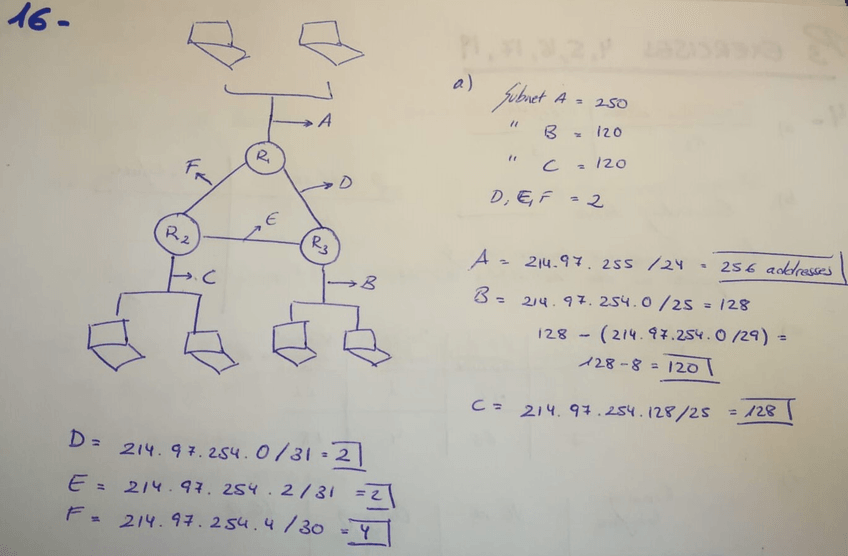 16-
A
R1
F
D
E
R2
R3
C
B
a)
Subnet A = 250
" B = 120
" C = 120
D, E, F = 2
A = 214.97.255 /24 = 256 addresses
B = 214.97.254.0/25 = 128
128 - (214.97.254.0/29) =
128-8 = 120
C = 214.97.254.128/25 = 128
D = 214.97.254.0/31 = 2
E = 214.97.254.2/31 = 2
F = 214.97.254.4/30 = 4